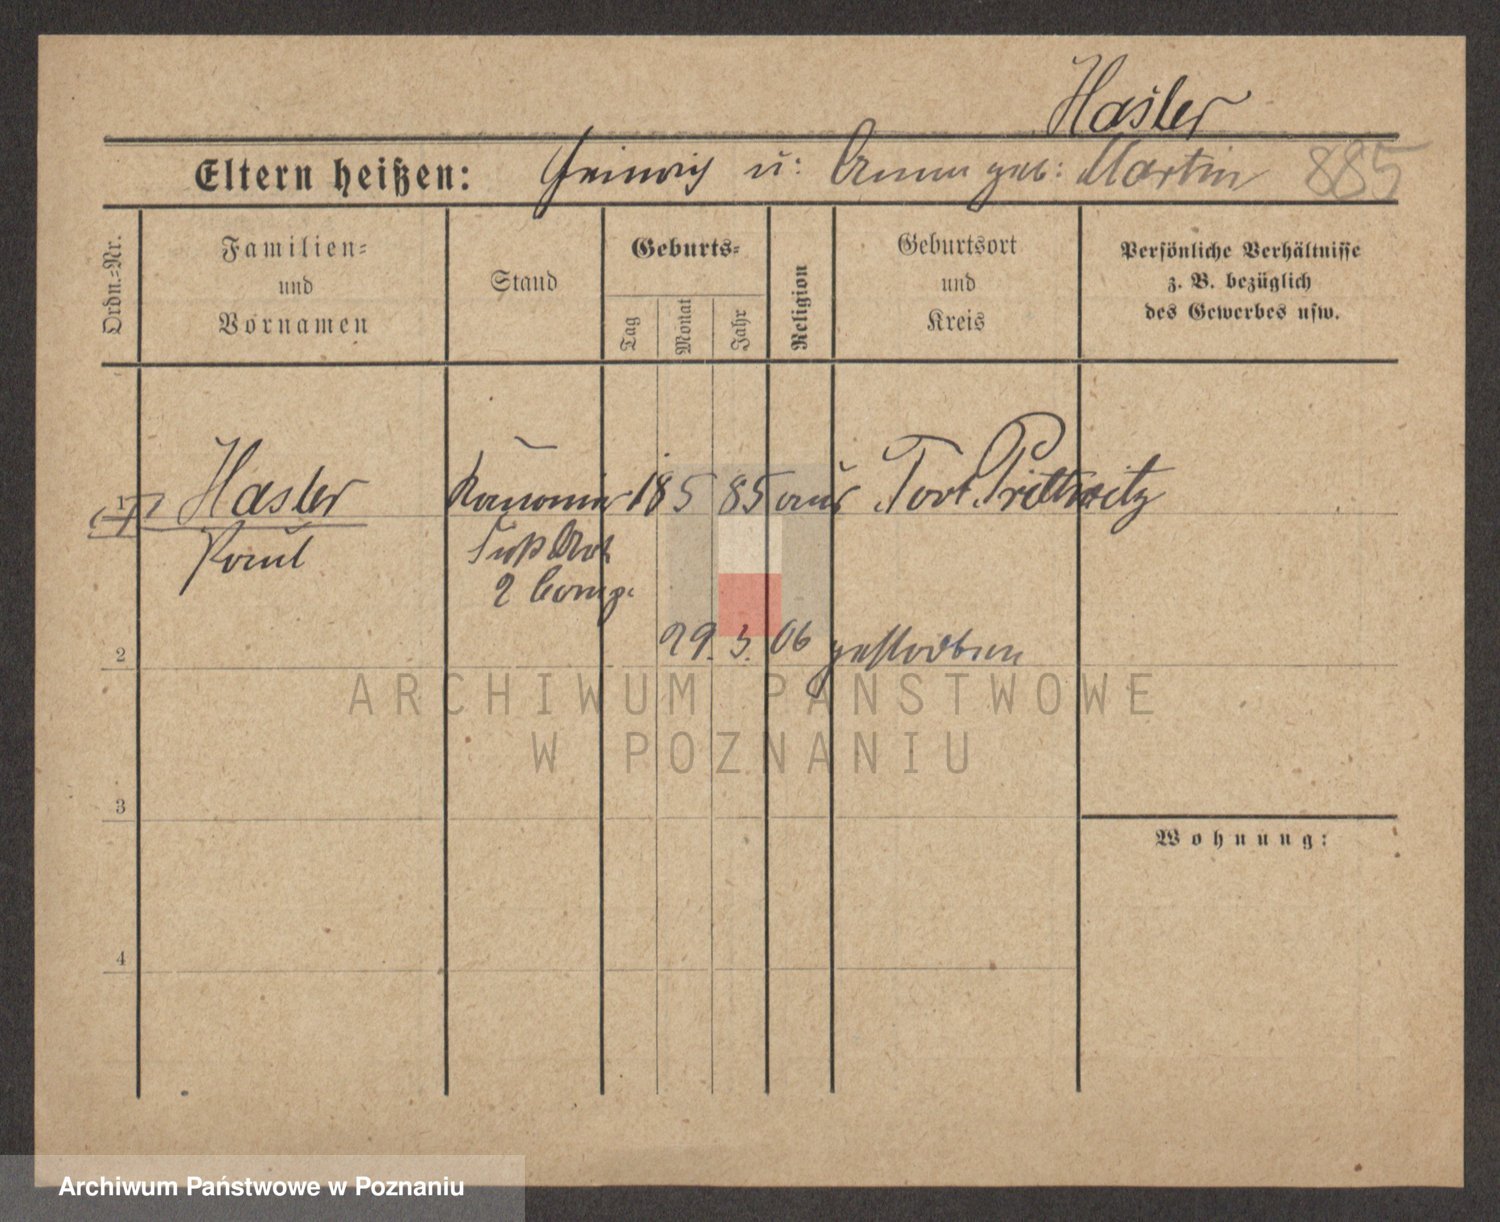 Hasler
Eltern heißen: Heinrich u: Anna geb: Martin 885
Ordn.-Nr.
Familien-
und
Vornamen
Stand
Geburts-
Tag
Monat
Jahr
Religion
Geburtsort
und
Kreis
Persönliche Verhältnisse
z. B. bezüglich
des Gewerbes usw.
1 Hasler Kanonier 18 5 85 aus Fort Prittwitz
Paul Fuß Art
2 Comp.
29. 3. 06 gestorben
2
3
4
Wohnung:
ARCHIWUM PAŃSTWOWE
W POZNANIU
Archiwum Państwowe w Poznaniu